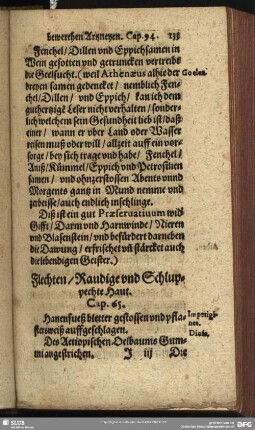 bewerthen Artzneyen. Cap. 94. 238
Fenchel/ Dillen vnd Eppichsamen in
Wein gesotten vnd getruncken vertreibs
die Geelsucht. (weil Athenæus alhie der
dreyen samen gedencket/ nemblich Fen-
chel/ Dillen/ vnd Eppich/ kan ich dem
gutherzigē Leser nicht verhalten/ sonder-
lich welchem sein Gesundheit lieb ist/ daß
einer/ wann er vber Land oder Wasser
reisen muß oder will/ allzeit auff ein vor-
sorge/ bey sich trage vnd habe/ Fenchel/
Aniß/ Kümmel/ Eppich vnd Petrosilien
samen/ vnd ohnzerstossen Abents vnnd
Morgents gantz in Mund nemme vnd
zerbeisse/ auch endlich inschlinge.
Diß ist ein gut Præservatiuum wid
Gifft/ Darm vnd Harnwinde/ Nieren
vnd Blasenstein/ vnd befürdert darneben
die Dawung/ erfrischet vñ stärcket auch
die lebendigen Geister.)
Flechten/ Raudige vnd Schlup-
pechte Haut.
Cap. 65.
Hanenfueß bletter gestossen vnd pfla-
sterweiß auffgeschlagen.
Impetigi-
nes.
Des Aetiopischen Oelbaums Gum-
mi angestrichen. J iij Die
SLUB
DFG